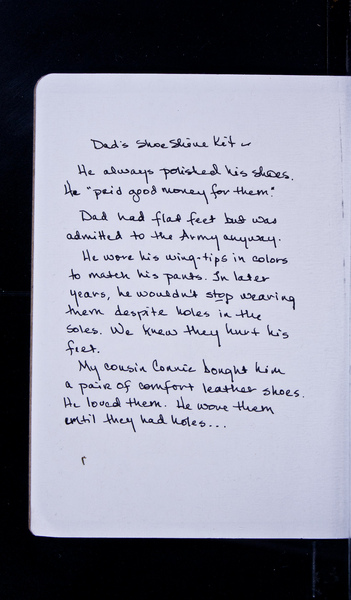 Dad's Shoe Shine Kit
He always polished his shoes.
He "paid good money for them."
Dad had flat feet but was
admitted to the Army anyway.
He wore his wing-tips in colors
to match his pants. In later
years, he wouldn't stop wearing
them despite holes in the
soles. We knew they hurt his
feet.
My cousin Connie bought him
a pair of comfort leather shoes.
He loved them. He wore them
until they had holes...